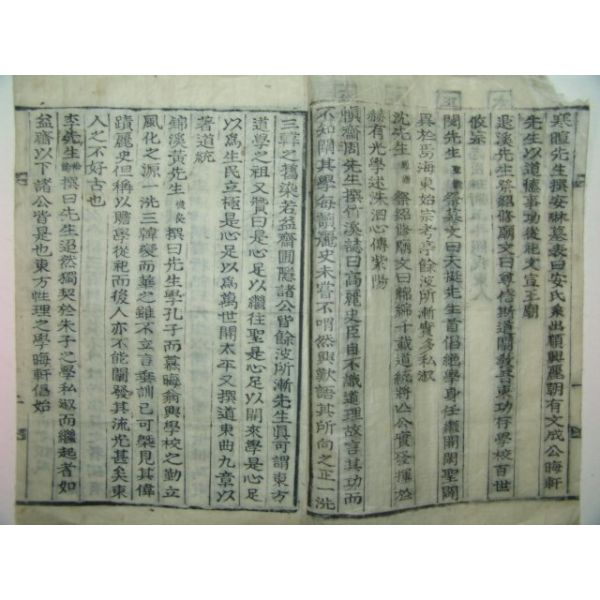 寒暄先生撰安琳墓表曰安氏系出順興麗朝有文成公晦軒
先生以道德事功從祀文宣王廟
退溪先生祭紹修廟文曰尊信斯道闡教吾東功存學校百世
攸宗
先生祭墓文曰天挺先生首倡絶學身任繼開閑聖闢
異於焉海東始宗考亭餘波所漸實多私淑
沈先生祭紹修廟文曰綿綿千載道統將亾公實發揮於
赫有光學述洙泗心傳紫陽
愼齋周先生撰竹溪誌曰高麗史臣自不識道理故言其功而
不知闡其學每讀麗史未嘗不喟然興歎語其所向之正一洗
三韓之舊染若益齋圃隱諸公皆餘波所漸先生眞可謂東方
道學之祖又贊曰是心足以繼往聖是心足以開來學是心足
以爲生民立極是心足以爲萬世開太平又撰道東曲九章以
著道統
錦溪黃先生俊良撰曰先生學孔子而慕晦翁興學校之勤立
風化之源一洗三韓變而華之雖不立言垂訓已可槩見其偉
蹟麗史但稱以贍學從祀而後人亦不能闡發其流光甚矣東
人之不好古也
李先生撰曰先生迢然獨契於朱子之學私淑而繼起者如
益齋以下諸公皆是也東方性理之學晦軒倡始